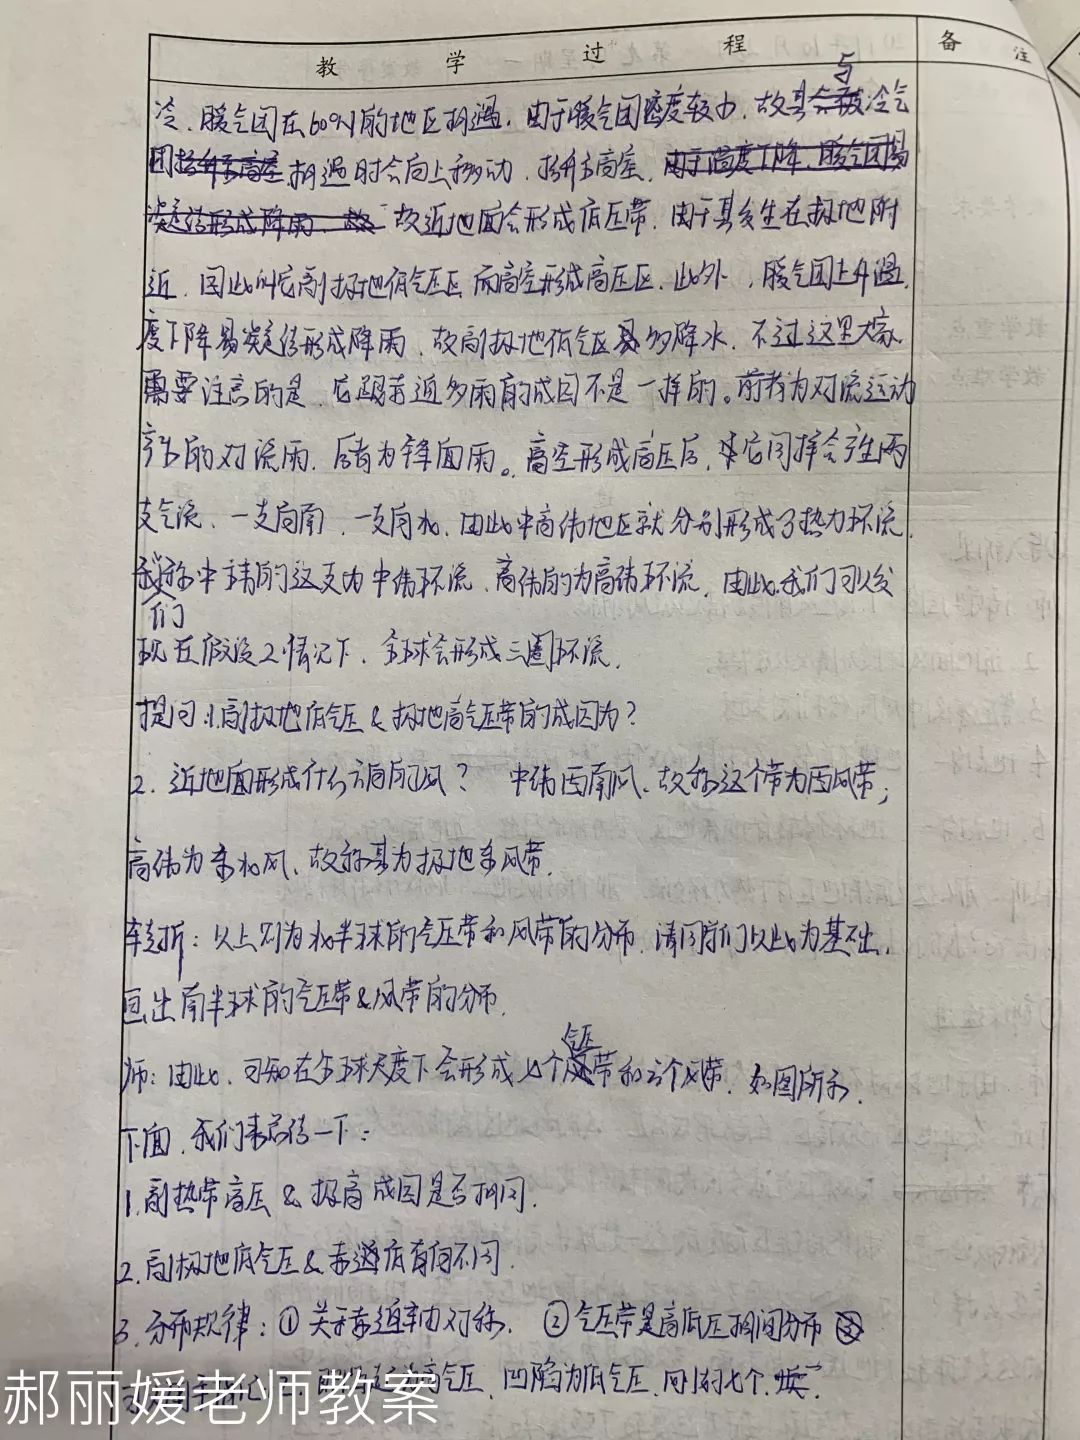 教学过程 备注
冷、暖气团在60°N的地区相遇，由于暖气团密度较小，故其与冷气
团相遇时会向上移动，抬升至高空，
故近地面会形成低压带，由于其发生在极地附
近，因此叫它副极地低气压区，而高空形成高压区，此外，暖气团上升温
度下降易凝结形成降雨，故副极地低气压区多降水，不过这里大家
需要注意的是，它跟赤道多雨的成因不是一样的。前者为对流运动
产生的对流雨，后者为锋面雨。高空形成高压后，它同样会产生两
支气流，一支向南，一支向北，由此中高纬地区就分别形成了热力环流，
我们称中纬的这支为中纬环流，高纬的为高纬环流，由此，我们可以发
现在假设2情况下，全球会形成三圈环流，
提问：1.副极地低气压&极地高气压带的成因为？
2. 近地面形成什么方向的风？ 中纬西南风，故称这个带为西风带；
高纬为东北风，故称其为极地东风带，
转折：以上则为北半球的气压带和风带的分布，请同学们以此为基础，
画出南半球的气压带&风带的分布，
师：由此，可知在全球尺度下会形成七个气压带和六个风带，如图所示，
下面，我们来总结一下：
1. 副热带高压&极高成因是否相同，
2. 副极地低气压&赤道低有何不同，
3. 分布规律：①关于赤道轴对称，②气压带是高低压相间分布
为高气压，凹陷为低气压，同的七个，
郝丽媛老师教案